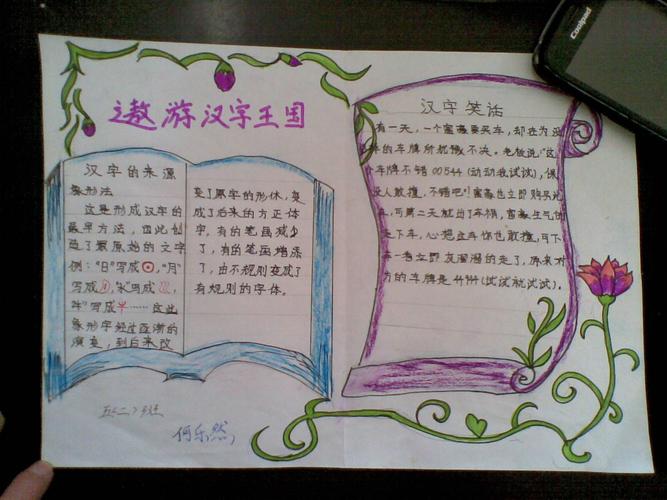 遨游汉字王国
汉字的来源
象形法
这是形成汉字的
最早方法，因此创
造了最原始的文字
例："日"写成 ，"月"
写成 ，"水"写成 ，
"牛"写成 ……这些
象形字经过逐渐的
演变，到后来改
变了原字的形体，变
成了后来的方正体
字，有的笔画减少
了，有的笔画增添
了，由不规则变成了
有规则的字体。
汉字笑话
有一天，一个富豪要买车，却在为
的车牌所犹豫不决。老板说："这
车牌不错00544(动动我试试)，保
没人敢撞，不错吧！富豪也立即购买
，可第二天就出了车祸，富豪生气的
走下车，心想这车你也敢撞，可下
车一看立即灰溜溜的走了，原来对
方的车牌是44944(试试就试试)。
五(二)班
何乐然
Coolpad